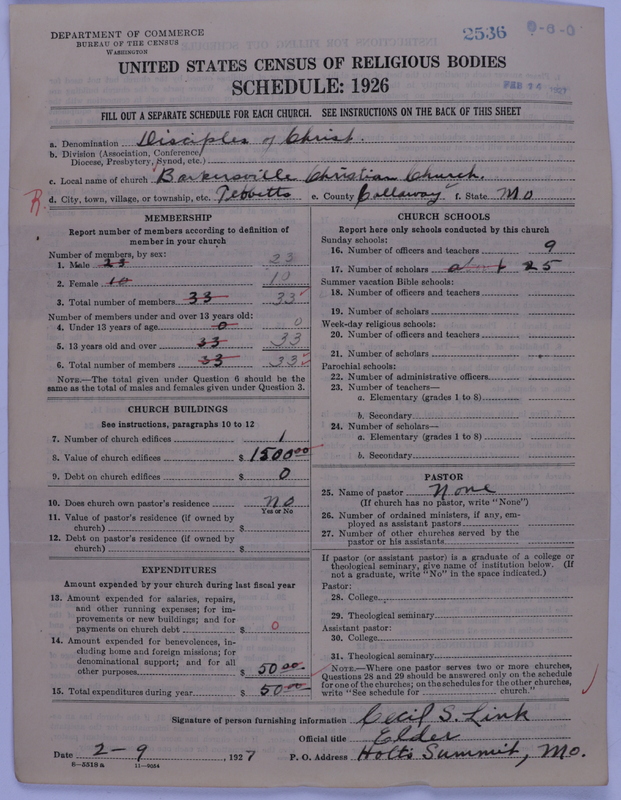 DEPARTMENT OF COMMERCE
BUREAU OF THE CENSUS
WASHINGTON
2536
9-8-0
FEB 14 1927
UNITED STATES CENSUS OF RELIGIOUS BODIES
SCHEDULE: 1926
FILL OUT A SEPARATE SCHEDULE FOR EACH CHURCH. SEE INSTRUCTIONS ON THE BACK OF THIS SHEET
a. Denomination Disciples of Christ.
b. Division (Association, Conference,
Diocese, Presbytery, Synod, etc.)
c. Local name of church Barkersville Christian Church.
R. d. City, town, village, or township, etc. Tebbetts e. County Callaway f. State Mo
MEMBERSHIP
Report number of members according to definition of
member in your church
Number of members, by sex:
1. Male 23 23
2. Female 10 10
3. Total number of members 33 33
Number of members under and over 13 years old:
4. Under 13 years of age 0 0
5. 13 years old and over 33 33
6. Total number of members 33 33
NOTE.—The total given under Question 6 should be the
same as the total of males and females given under Question 3.
CHURCH BUILDINGS
See instructions, paragraphs 10 to 12
7. Number of church edifices 1
8. Value of church edifices $ 1500.00
9. Debt on church edifices $ 0
10. Does church own pastor's residence No
Yes or No
11. Value of pastor's residence (if owned by
church) $
12. Debt on pastor's residence (if owned by
church) $
EXPENDITURES
Amount expended by your church during last fiscal year
13. Amount expended for salaries, repairs,
and other running expenses; for im-
provements or new buildings; and for
payments on church debt $ 0
14. Amount expended for benevolences, in-
cluding home and foreign missions; for
denominational support; and for all
other purposes $ 50.00
15. Total expenditures during year $ 50.00
CHURCH SCHOOLS
Report here only schools conducted by this church
Sunday schools:
16. Number of officers and teachers 9
17. Number of scholars about 25
Summer vacation Bible schools:
18. Number of officers and teachers
19. Number of scholars
Week-day religious schools:
20. Number of officers and teachers
21. Number of scholars
Parochial schools:
22. Number of administrative officers
23. Number of teachers—
a. Elementary (grades 1 to 8)
b. Secondary
24. Number of scholars—
a. Elementary (grades 1 to 8)
b. Secondary
PASTOR
25. Name of pastor None
(If church has no pastor, write "None")
26. Number of ordained ministers, if any, em-
ployed as assistant pastors
27. Number of other churches served by the
pastor or his assistants
If pastor (or assistant pastor) is a graduate of a college or
theological seminary, give name of institution below. (If
not a graduate, write "No" in the space indicated.)
Pastor:
28. College
29. Theological seminary
Assistant pastor:
30. College
31. Theological seminary
NOTE.—Where one pastor serves two or more churches,
Questions 28 and 29 should be answered only on the schedule
for one of the churches; on the schedules for the other churches,
write "See schedule for church."
Signature of person furnishing information Cecil S. Link
Official title Elder
Date 2-9, 1927 P. O. Address Holts Summit, Mo.
8-5518 a 11-9034